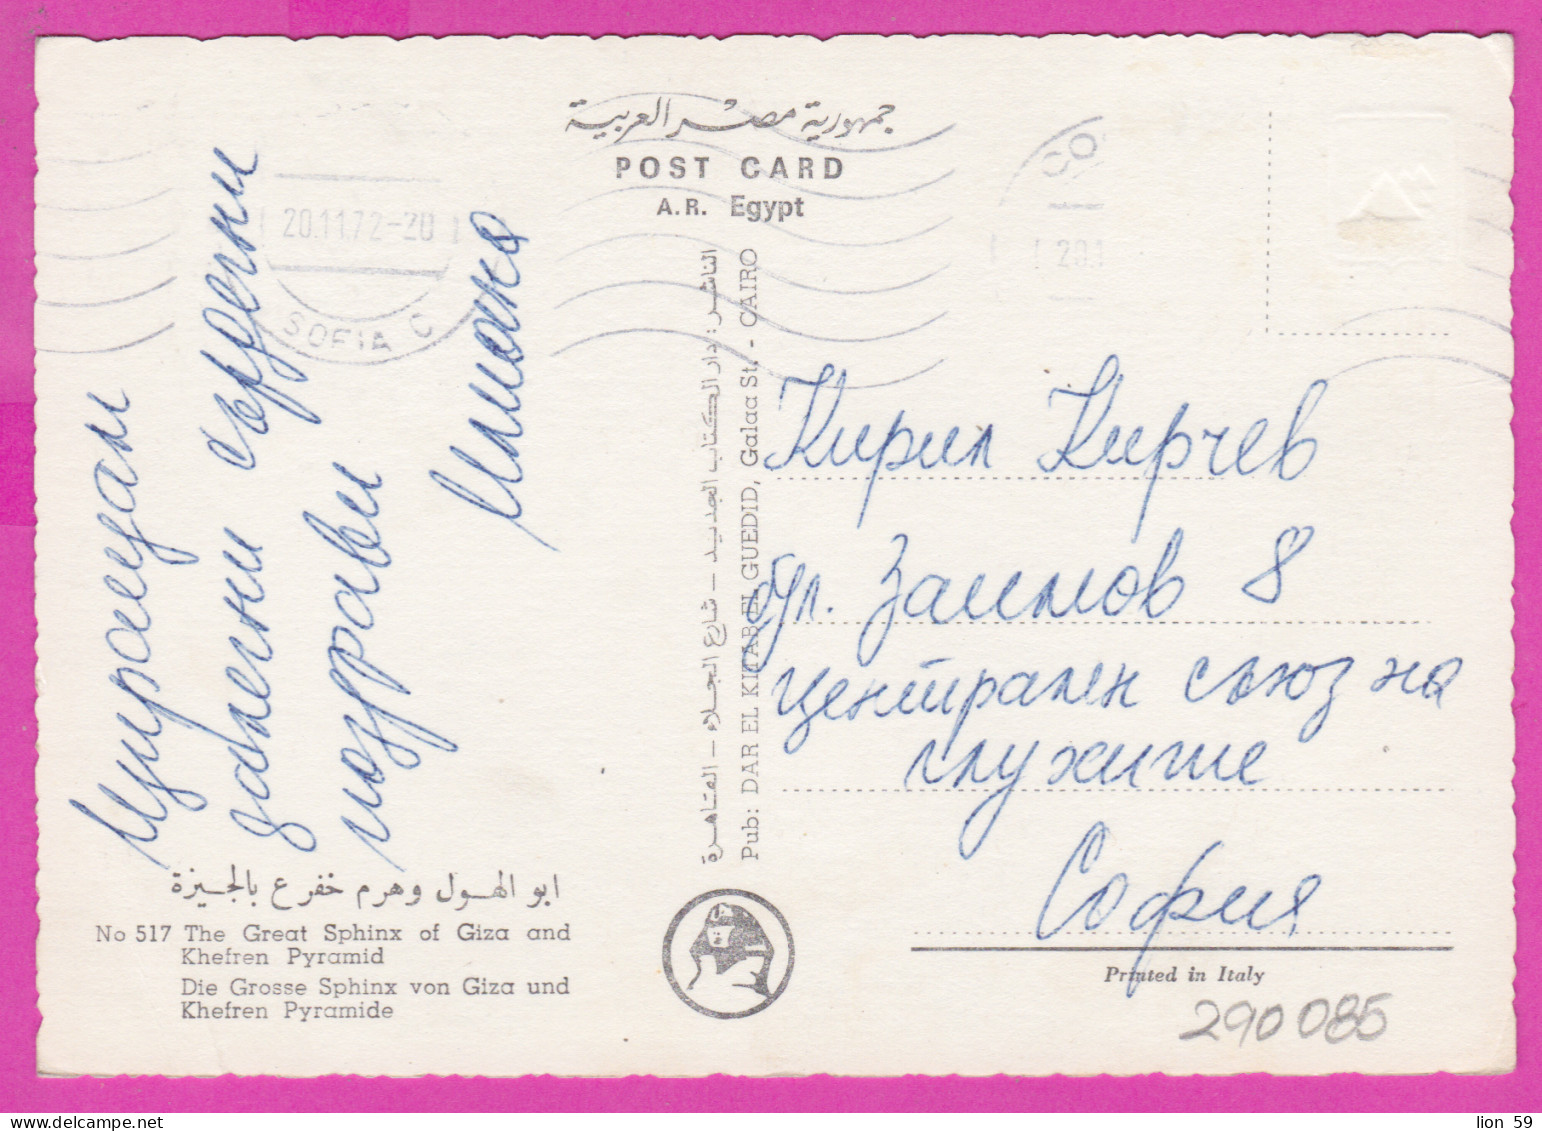 جمهورية مصر العربية
POST CARD
A.R. Egypt
20.11.72-20
SOFIA C
СО
20.1
Изпращам
далечни сърдечни
поздрави
Илиана
الناشر: دار الكتاب الجديد - شارع الجلاء - القاهرة
Pub: DAR EL KITAB EL GUEDID, Galaa St. - CAIRO
Кирил Кирчев
бул. Заимов 8
централен съюз на
глухите
София
ابو الهول وهرم خفرع بالجيزة
No 517 The Great Sphinx of Giza and
Khefren Pyramid
Die Grosse Sphinx von Giza und
Khefren Pyramide
Printed in Italy
290085
lion 59